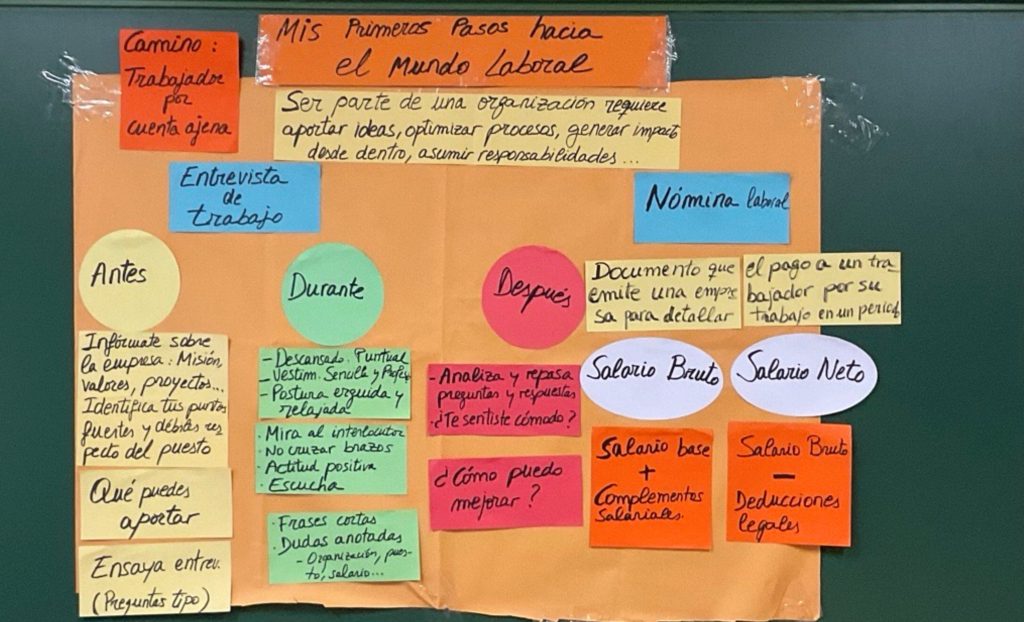 Camino:
Trabajador
por
cuenta ajena
Mis Primeros Pasos hacia
el Mundo Laboral
Ser parte de una organización requiere
aportar ideas, optimizar procesos, generar impacto
desde dentro, asumir responsabilidades...
Entrevista
de
trabajo
Antes
Infórmate sobre
la empresa: Misión,
valores, proyectos...
Identifica tus puntos
fuertes y débiles res
pecto del puesto
Qué puedes
aportar
Ensaya entrev.
(Preguntas tipo)
Durante
- Descansado. Puntual
- Vestim. Sencilla y Profes
- Postura erguida y
relajada
· Mira al interlocutor
· No cruzar brazos
· Actitud positiva
· Escucha
· Frases cortas
· Dudas anotadas
- Organización, pues-
to, salario...
Después
- Analiza y repasa
preguntas y respuestas
- ¿Te sentiste cómodo?
¿Cómo puedo
mejorar?
Nómina laboral
Documento que
emite una empre
sa para detallar
el pago a un tra-
bajador por su
trabajo en un period
Salario Bruto
Salario base
+
Complementos
Salariales.
Salario Neto
Salario Bruto
-
Deducciones
legales